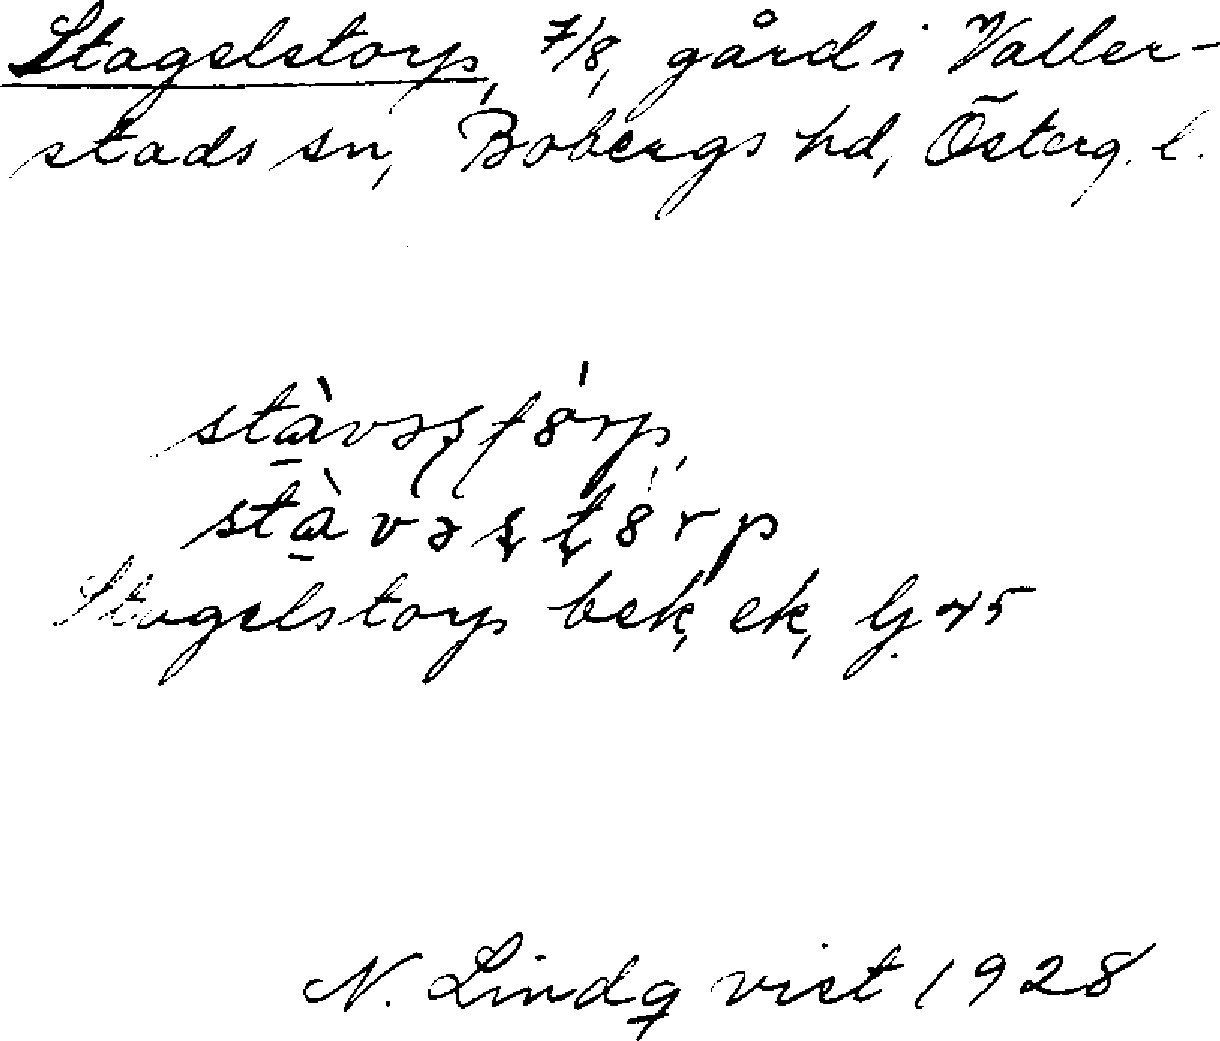 Stagelstorp, 7/8, gård i Valler-
stads sn, Bobergs hd, Österg. l.
stàvəʂʈórp,
stàvəʂʈórp
Stagelstorp bek, ek, lj. 45
N. Lindqvist 1928